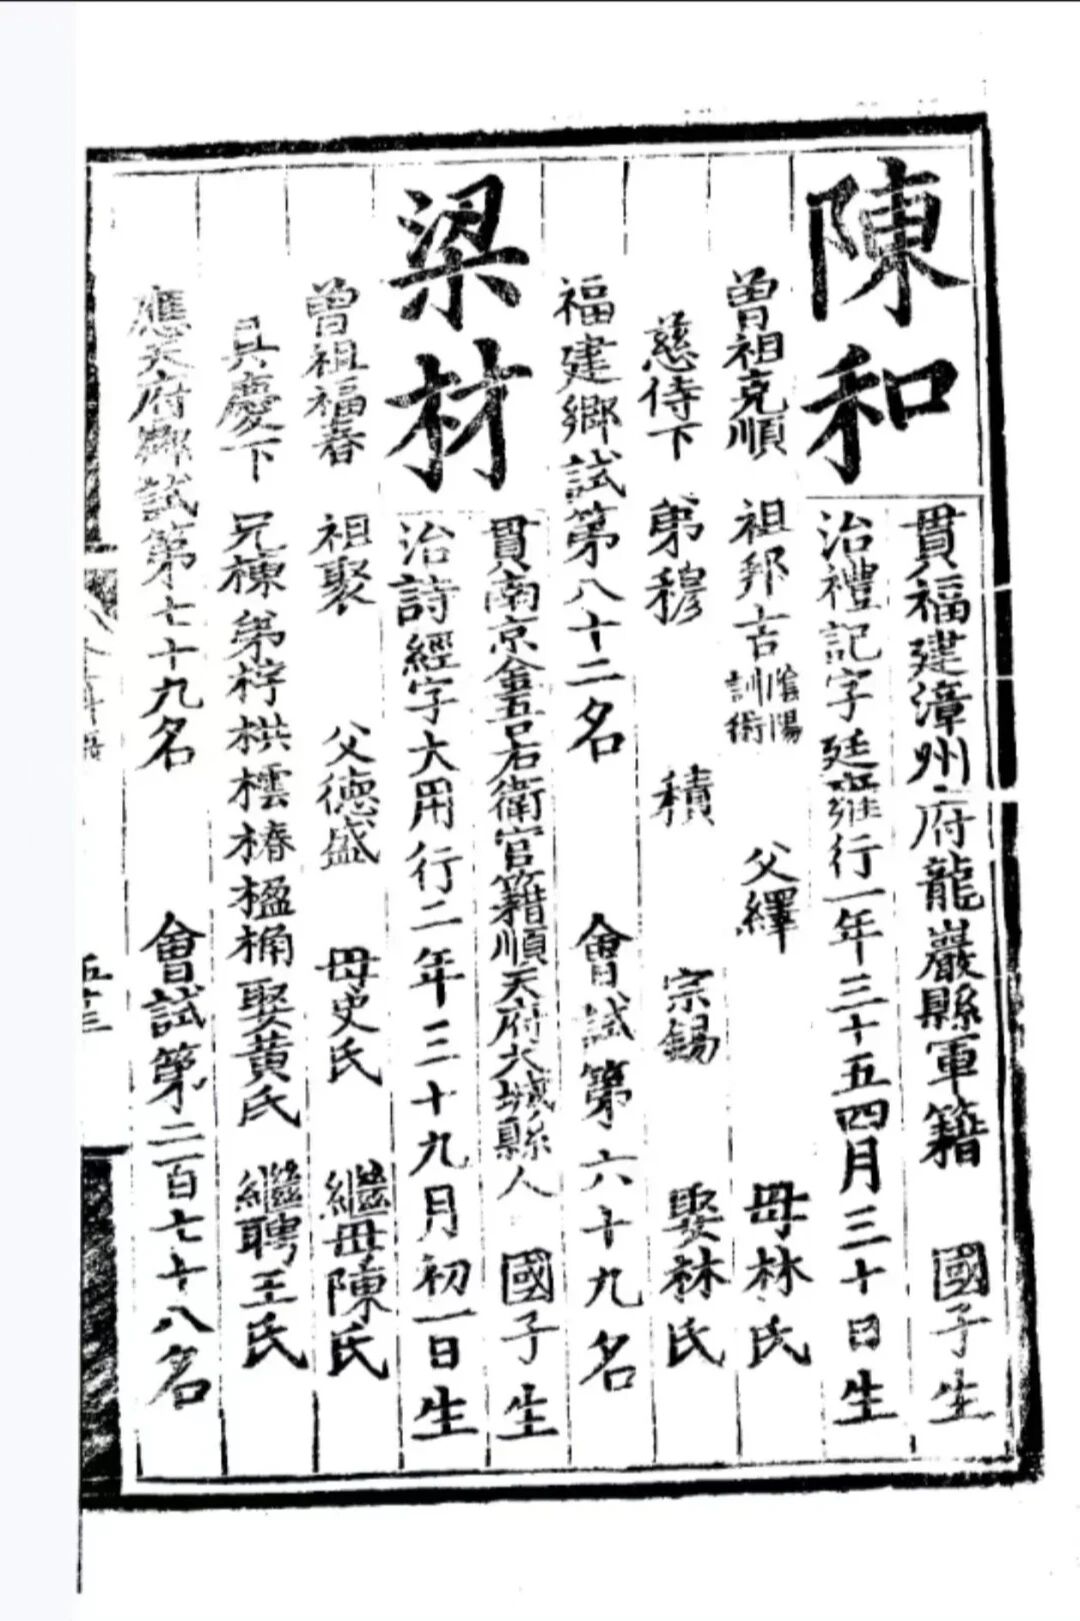 陳和
貫福建漳州府龍巖縣軍籍 國子生
治禮記字廷雍行一年三十五四月三十日生
曾祖克順 祖邦吉 陰陽訓術 父繹 母林氏
慈侍下 弟穆 積 宗錫 娶林氏
福建鄉試第八十二名 會試第六十九名
梁材
貫南京金吾右衛官籍順天府大城縣人 國子生
治詩經字大用行二年三十九月初一日生
曾祖福春 祖聚 父德盛 母史氏 繼母陳氏
具慶下 兄棟弟桴栱橒椿楹桷娶黄氏 繼聘王氏
應天府鄉試第七十九名 會試第二百七十八名
五十三